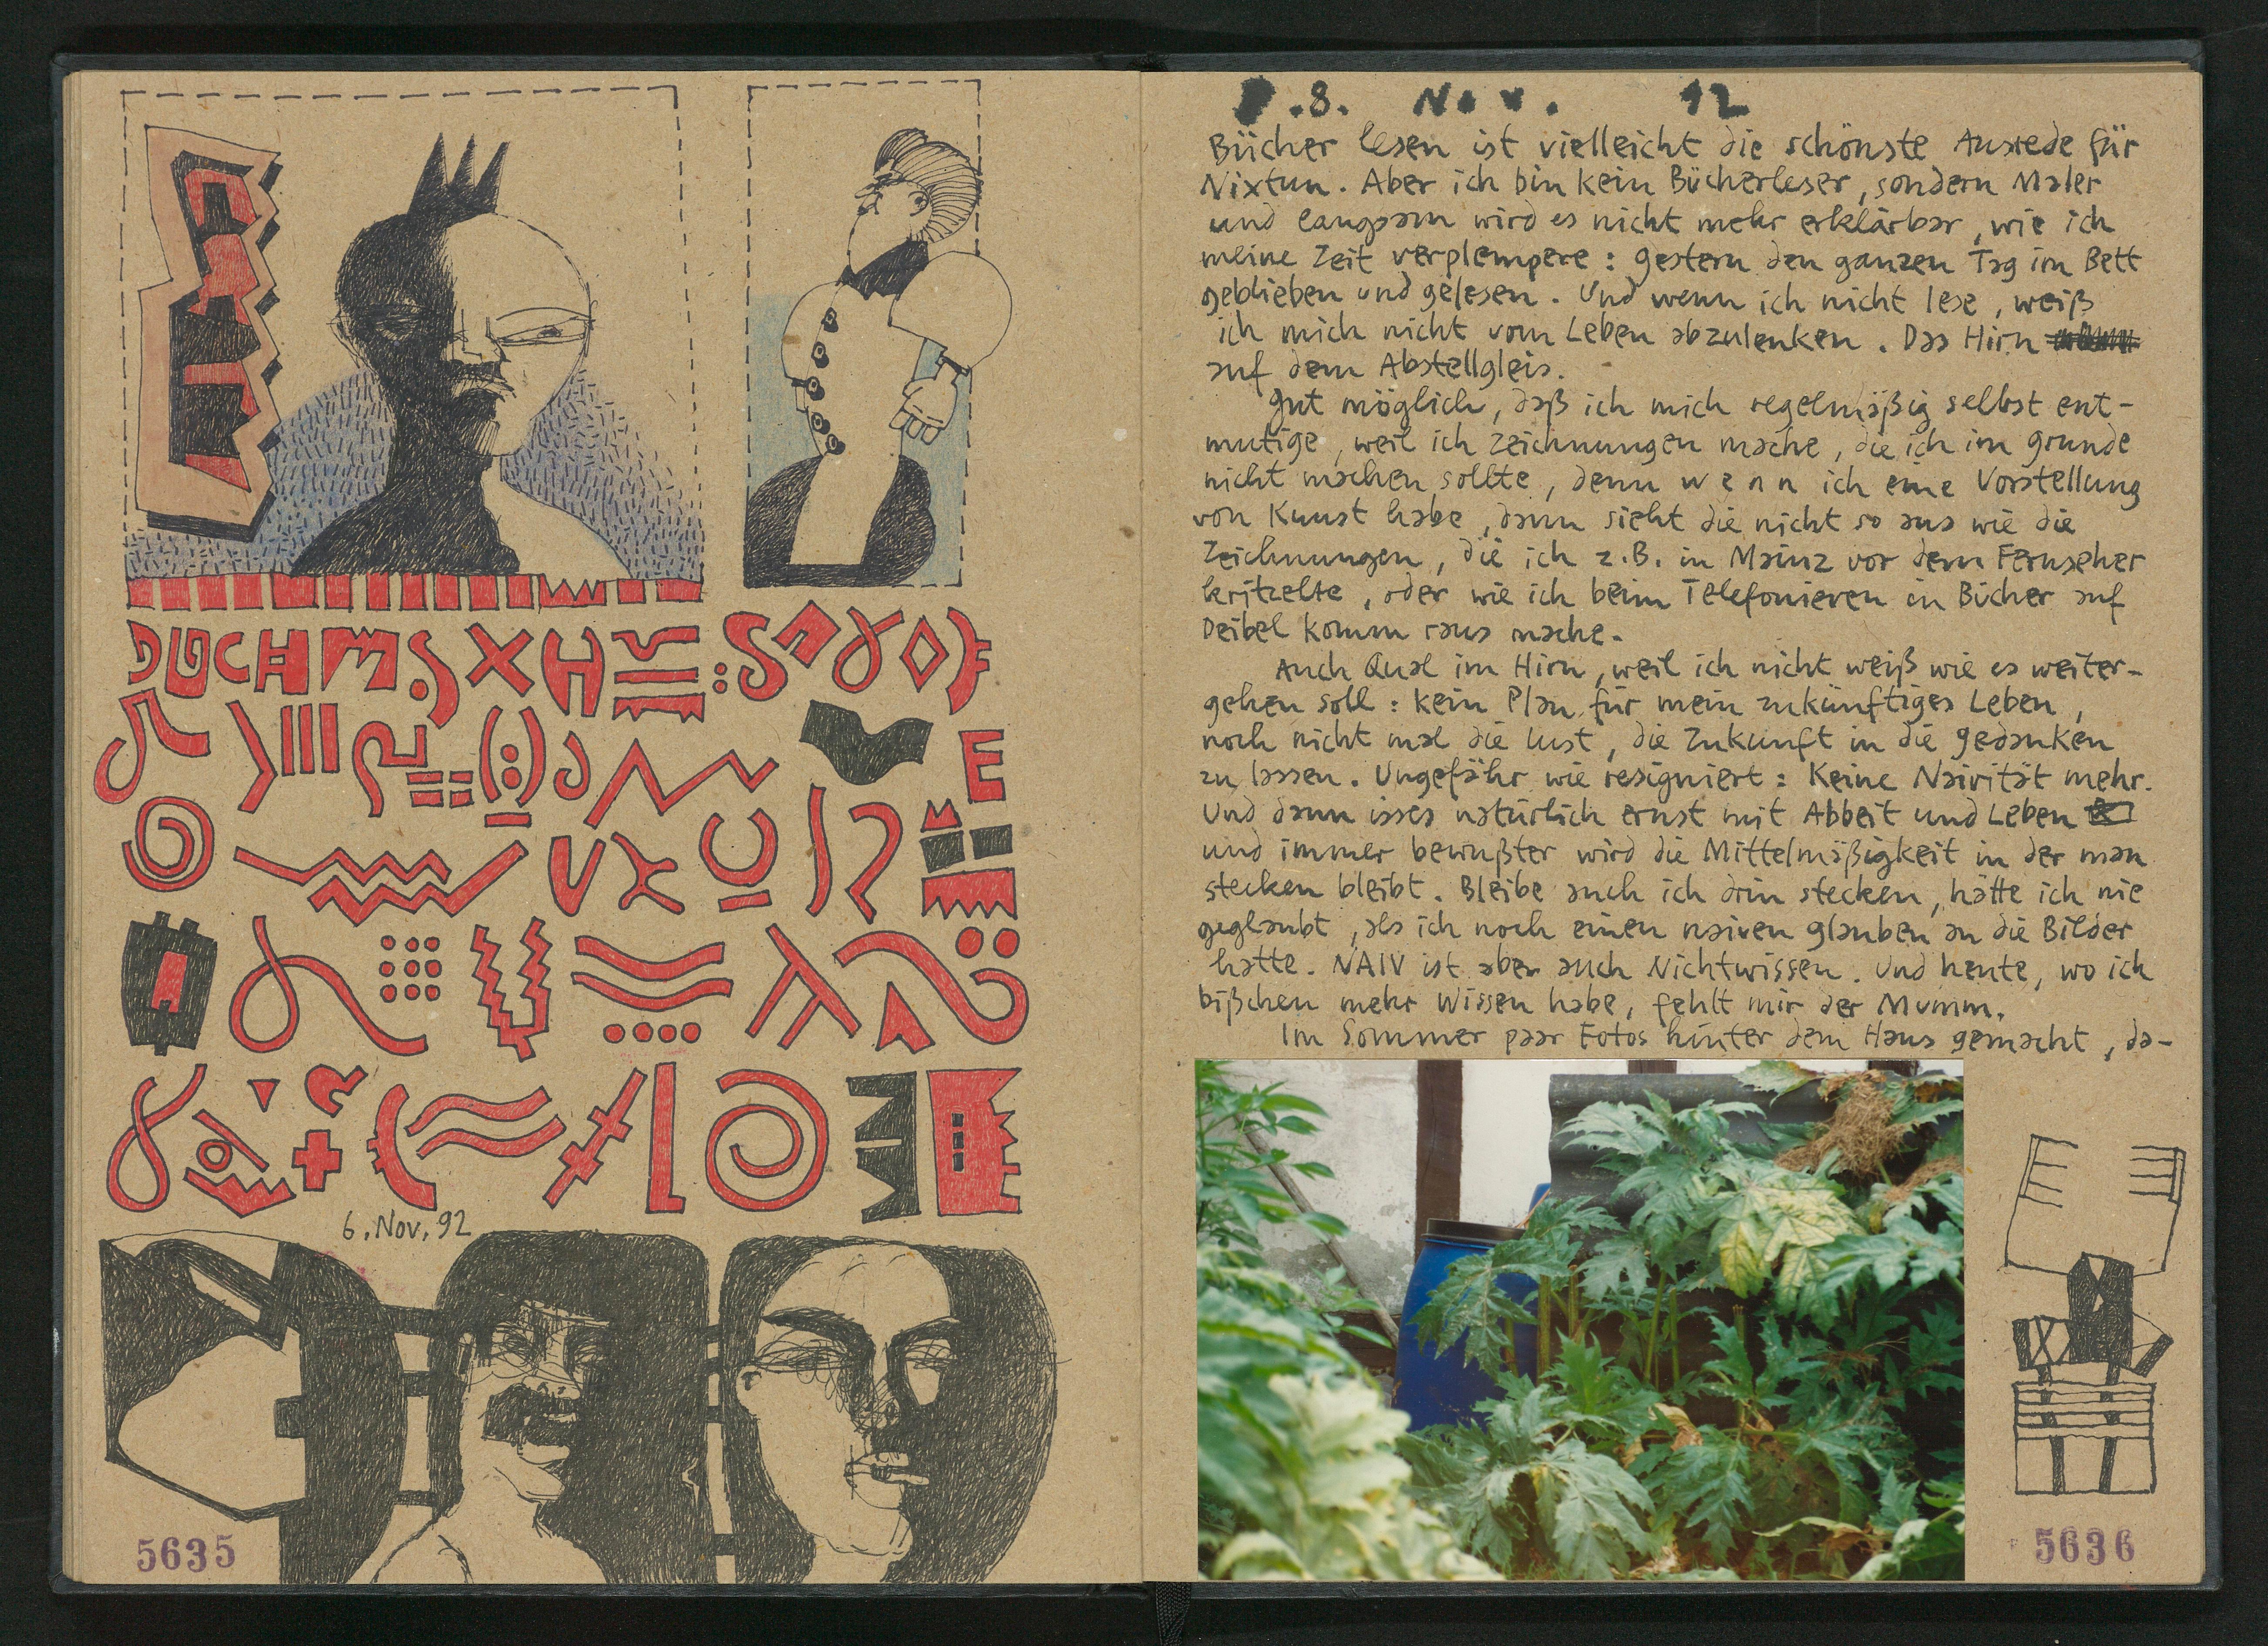 6. Nov. 92
5635
8. Nov. 92
Bücher lesen ist vielleicht die schönste Ausrede für
Nixtun. Aber ich bin kein Bücherleser, sondern Maler
und langsam wird es nicht mehr erklärbar, wie ich
meine Zeit verplempere: gestern den ganzen Tag im Bett
geblieben und gelesen. Und wenn ich nicht lese, weiß
ich mich nicht vom Leben abzulenken. Das Hirn
auf dem Abstellgleis.
Gut möglich, daß ich mich regelmäßig selbst ent-
mutige, weil ich Zeichnungen mache, die ich im Grunde
nicht machen sollte, denn wenn ich eine Vorstellung
von Kunst habe, dann sieht die nicht so aus wie die
Zeichnungen, die ich z.B. in Mainz vor dem Fernseher
kritzelte, oder wie ich beim Telefonieren in Bücher auf
Deibel komm raus mache.
Auch Qual im Hirn, weil ich nicht weiß wie es weiter-
gehen soll: kein Plan für mein zukünftiges Leben,
noch nicht mal die Lust, die Zukunft in die Gedanken
zu lassen. Ungefähr wie resigniert: Keine Naivität mehr.
Und dann isses natürlich ernst mit Abbeit und Leben
und immer bewußter wird die Mittelmäßigkeit in der man
stecken bleibt. Bleibe auch ich drin stecken, hätte ich nie
geglaubt, als ich noch einen naiven Glauben an die Bilder
hatte. NAIV ist aber auch Nichtwissen. Und heute, wo ich
bißchen mehr Wissen habe, fehlt mir der Mumm.
Im Sommer paar Fotos hinter dem Haus gemacht, da-
5636